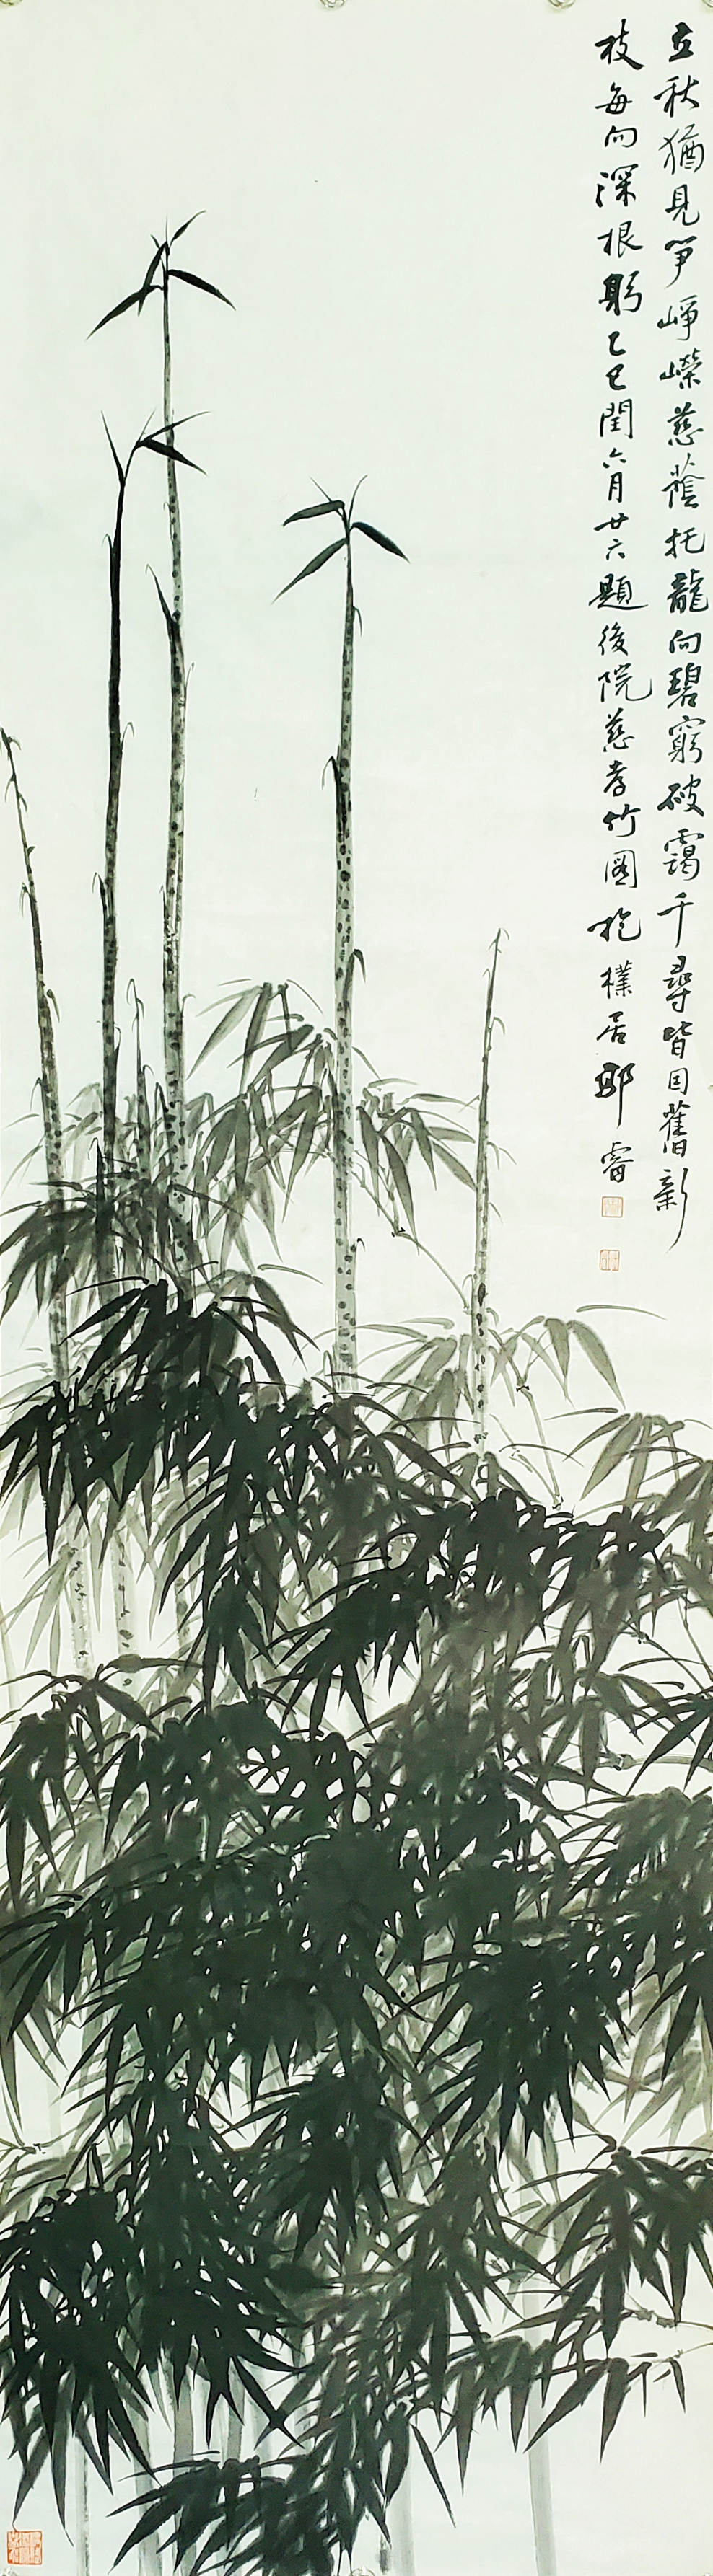 立秋猶見笋崢嶸慈蔭托龍向碧窮破靄千尋皆因舊新
枝每向深根躬乙巳閏六月廿六題後院慈孝竹圖抱樸居鄢睿